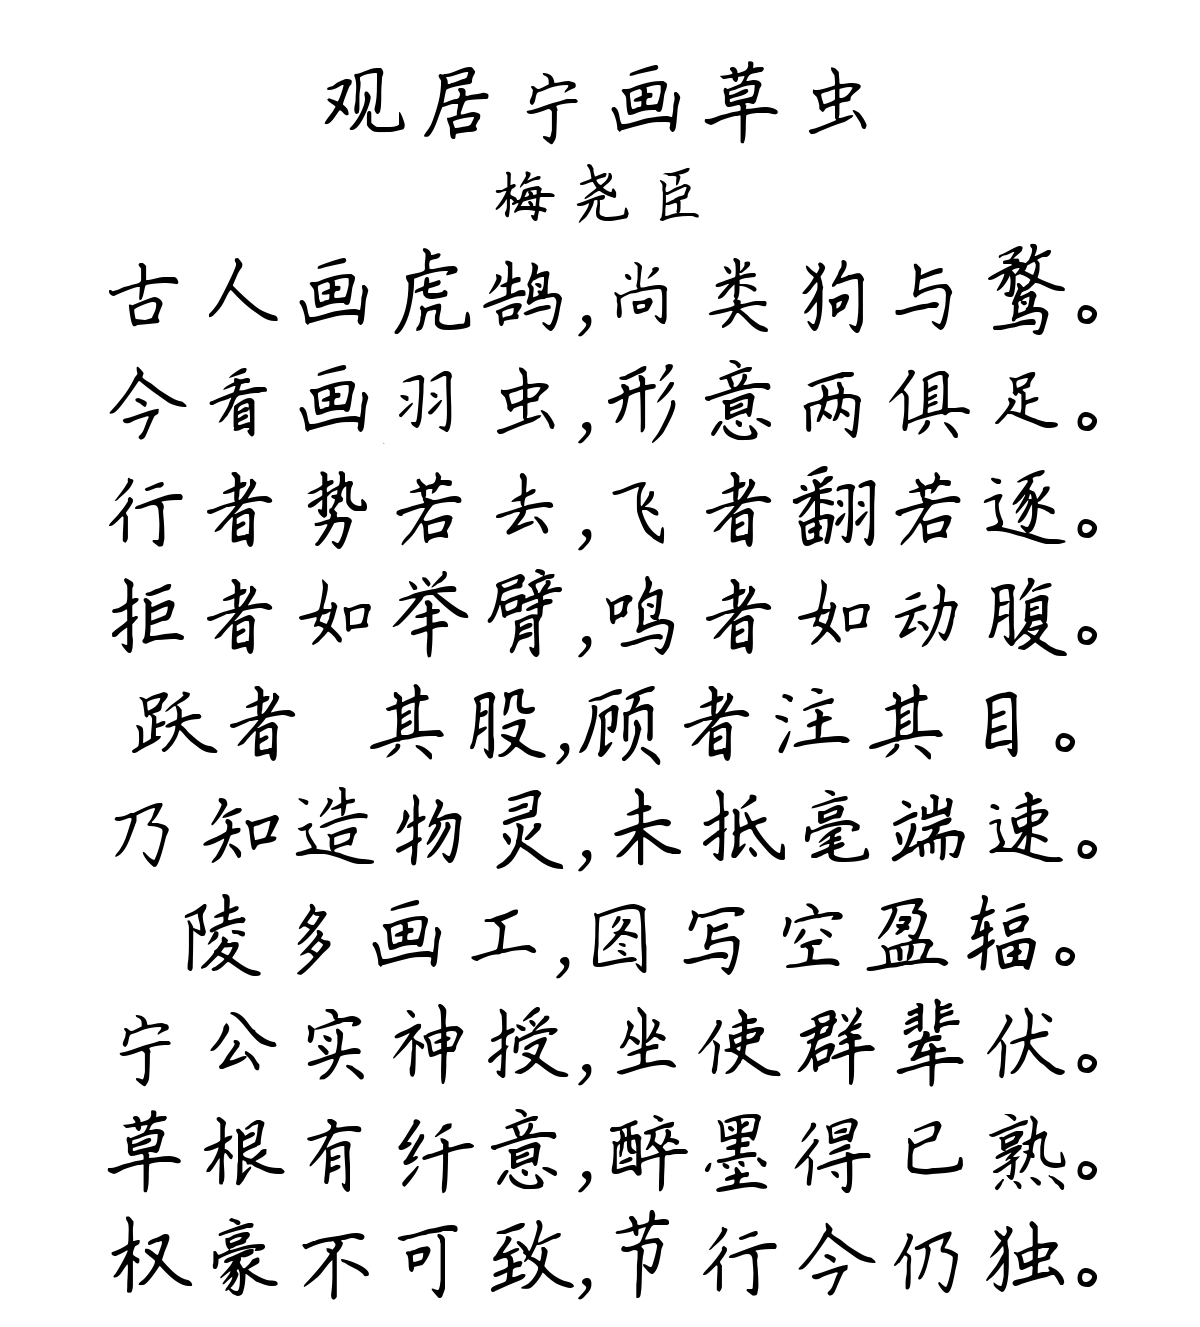 观居宁画草虫
梅尧臣
古人画虎鹄,尚类狗与鹜。
今看画羽虫,形意两俱足。
行者势若去,飞者翻若逐。
拒者如举臂,鸣者如动腹。
跃者 其股,顾者注其目。
乃知造物灵,未抵毫端速。
陵多画工,图写空盈辐。
宁公实神授,坐使群辈伏。
草根有纤意,醉墨得已熟。
权豪不可致,节行今仍独。